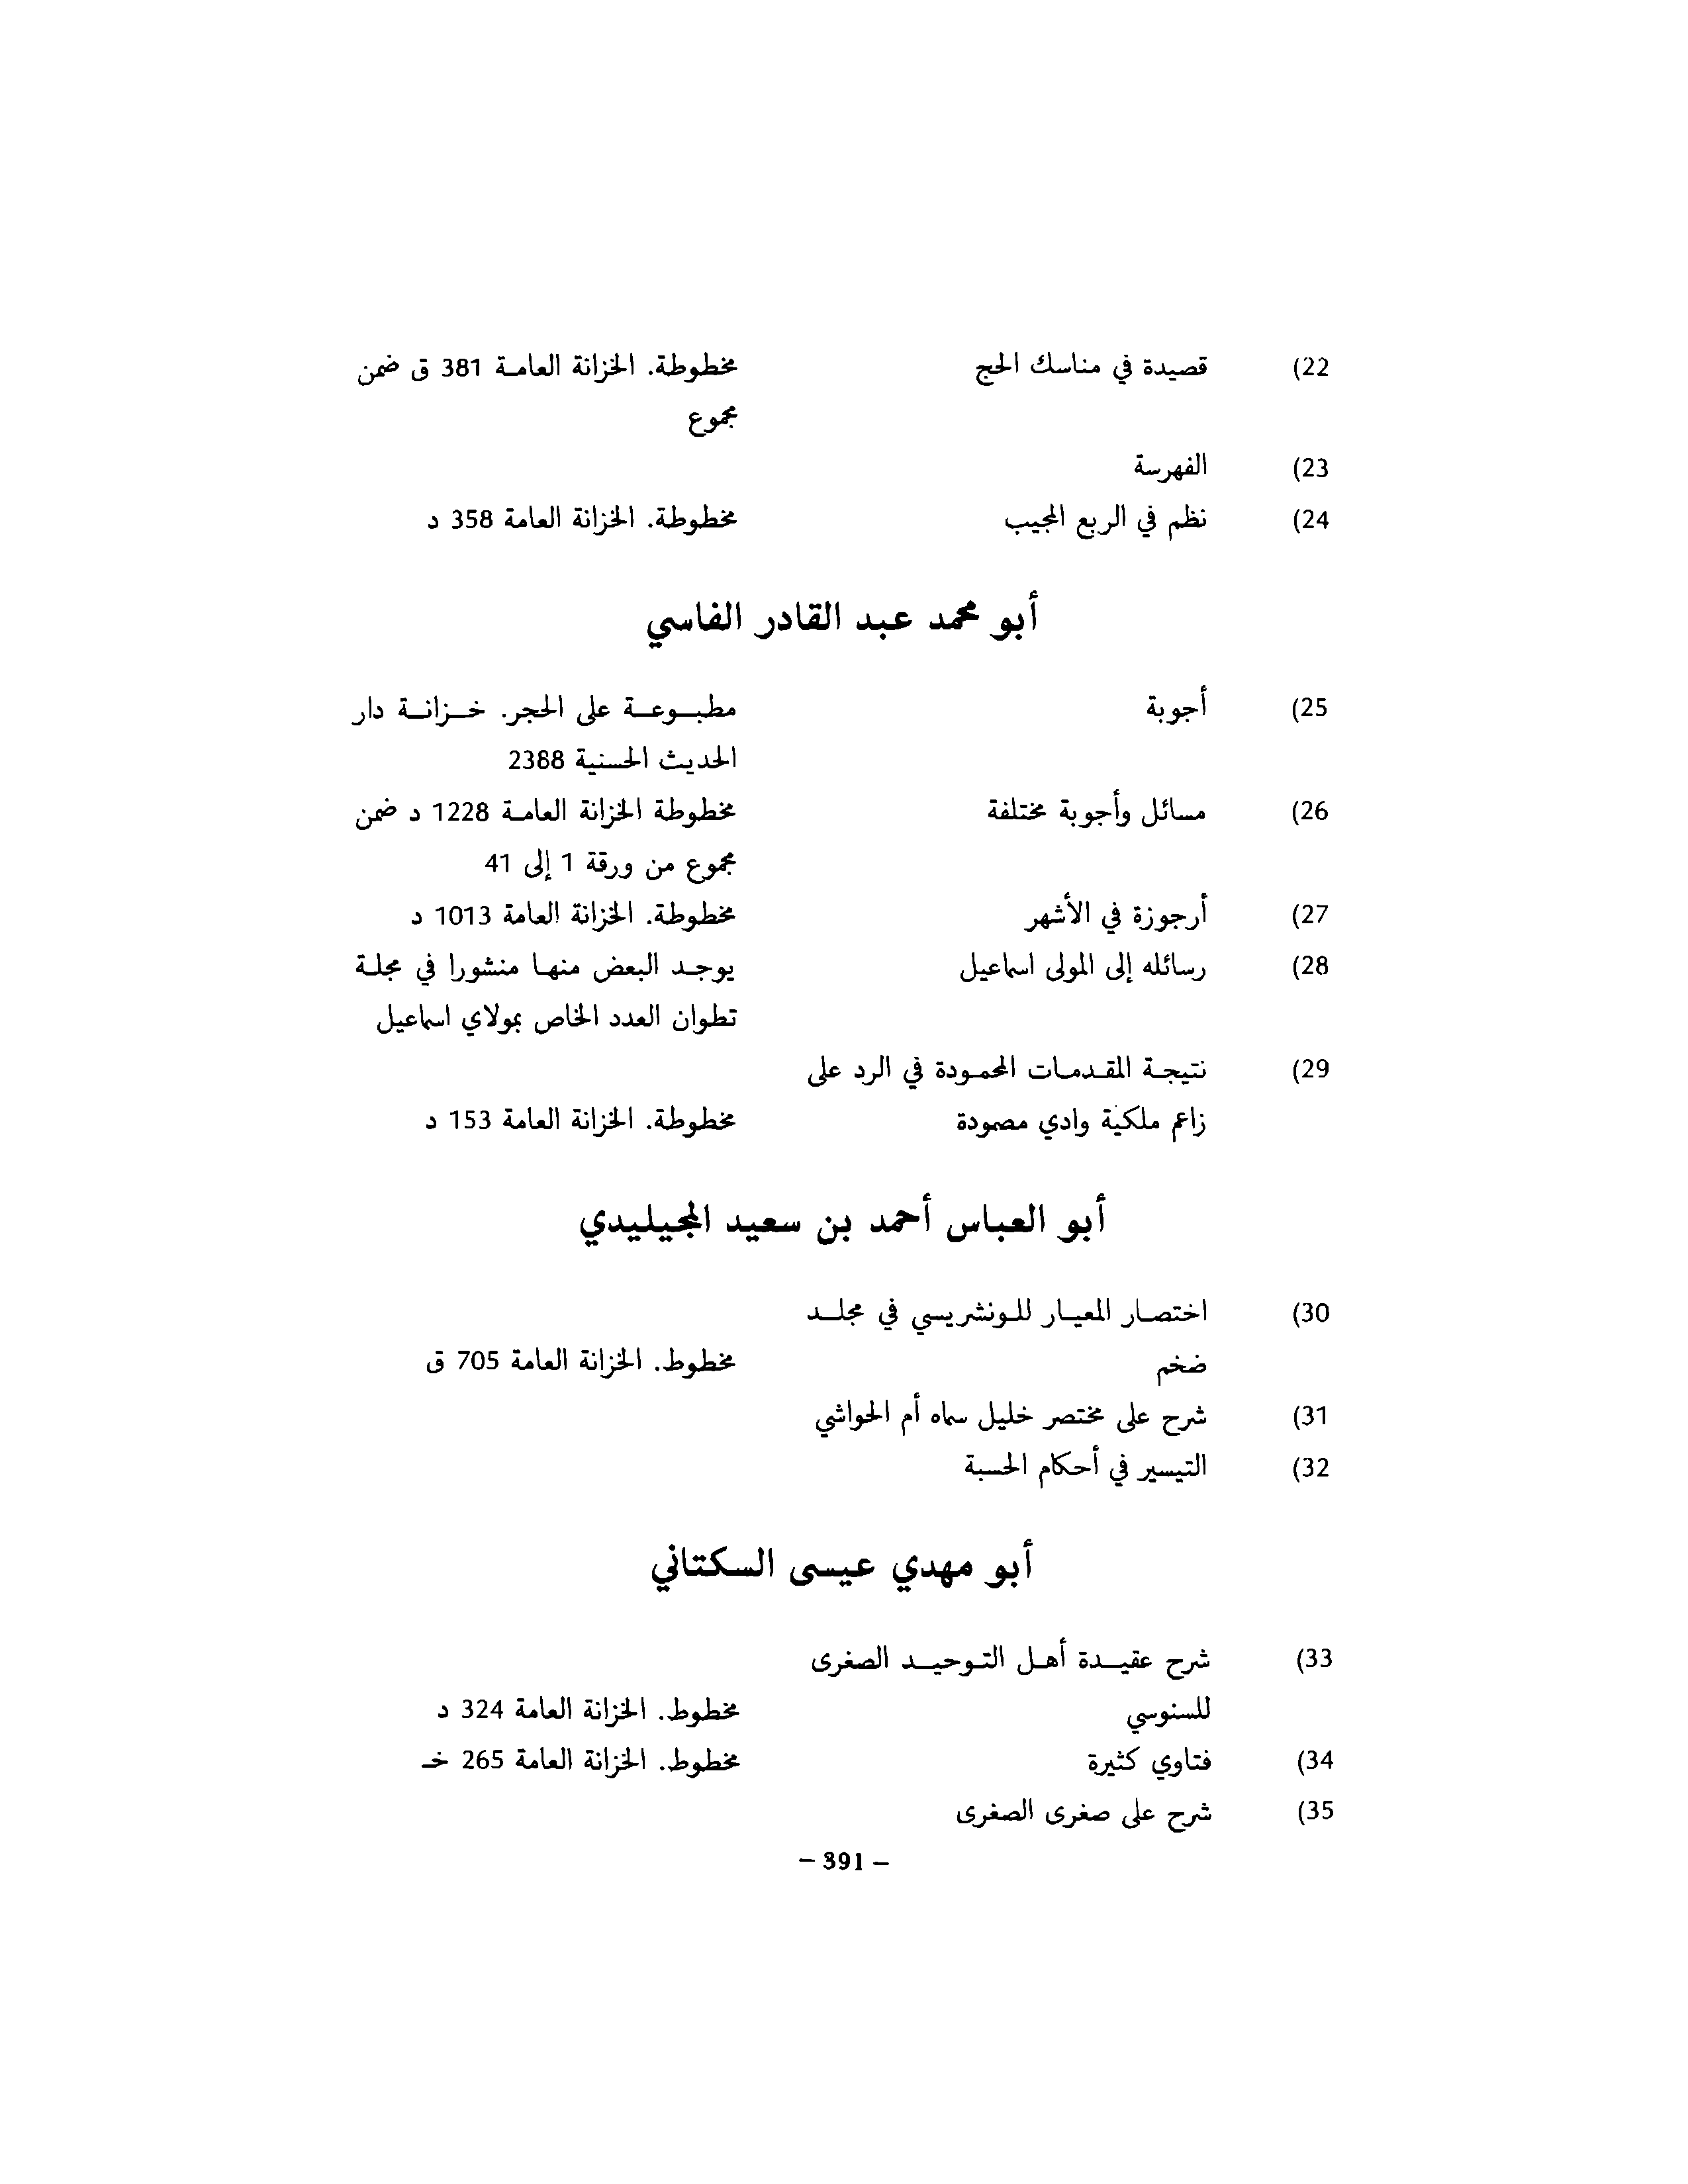 22) قصيدة في مناسك الحج مخطوطة. الخزانة العامة 381 ق ضمن
مجموع
23) الفهرسة
24) نظم في الربع المجيب مخطوطة. الخزانة العامة 358 د
أبو محمد عبد القادر الفاسي
25) أجوبة مطبوعة على الحجر. خزانة دار
الحديث الحسنية 2388
26) مسائل وأجوبة مختلفة مخطوطة الخزانة العامة 1228 د ضمن
مجموع من ورقة 1 إلى 41
27) أرجوزة في الأشهر مخطوطة. الخزانة العامة 1013 د
28) رسائله إلى المولى اسماعيل يوجد البعض منها منشورا في مجلة
تطوان العدد الخاص بمولاي اسماعيل
29) نتيجة المقدمات المحمودة في الرد على
زاعم ملكية وادي مصمودة مخطوطة. الخزانة العامة 153 د
أبو العباس أحمد بن سعيد المجيليدي
30) اختصار المعيار للونشريسي في مجلد
ضخم مخطوط. الخزانة العامة 705 ق
31) شرح على مختصر خليل سماه أم الحواشي
32) التيسير في أحكام الحسبة
أبو مهدي عيسى السكتاني
33) شرح عقيدة أهل التوحيد الصغرى
للسنوسي مخطوط. الخزانة العامة 324 د
34) فتاوي كثيرة مخطوط. الخزانة العامة 265 خـ
35) شرح على صغرى الصغرى
– 391 –